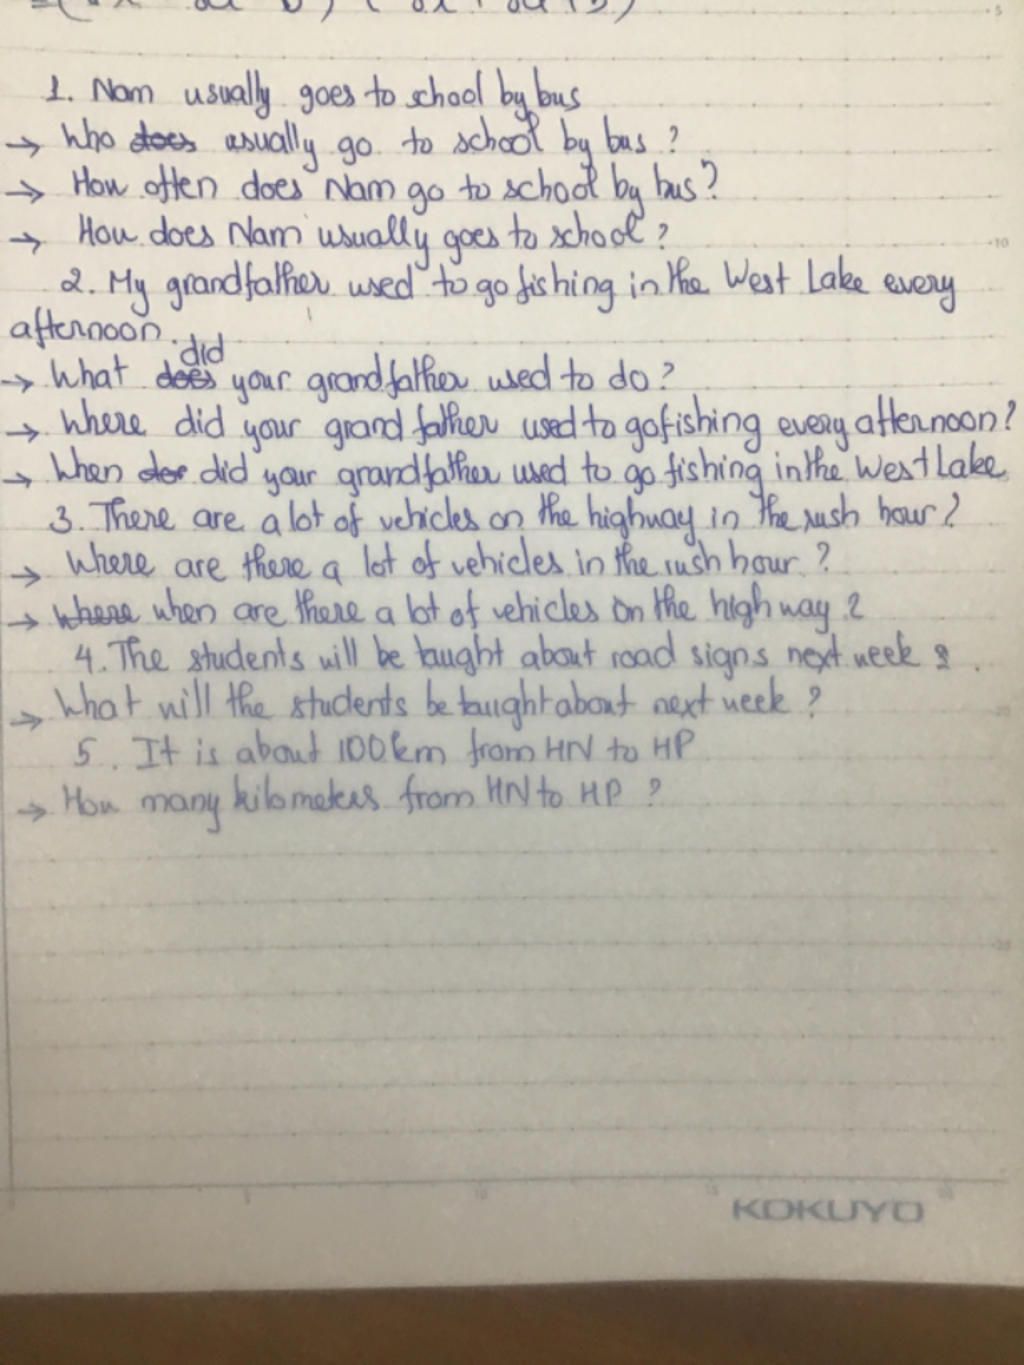 1. Nam usually goes to school by bus
→ Who does usually go to school by bus ?
→ How often does Nam go to school by bus?
→ How does Nam usually goes to school ?
2. My grandfather used to go fishing in the West Lake every
afternoon.
did
→ What does your grandfather used to do ?
→ Where did your grand father used to go fishing every afternoon ?
→ When did your grandfather used to go fishing in the West Lake
3. There are a lot of vehicles on the highway in the rush hour ?
→ Where are there a lot of vehicles in the rush hour ?
→ where when are there a lot of vehicles on the high way ?
4. The students will be taught about road signs next week ? .
→ What will the students be taught about next week ?
5. It is about 100km from HN to HP
→ How many kilometers from HN to HP ?
KOKUYO